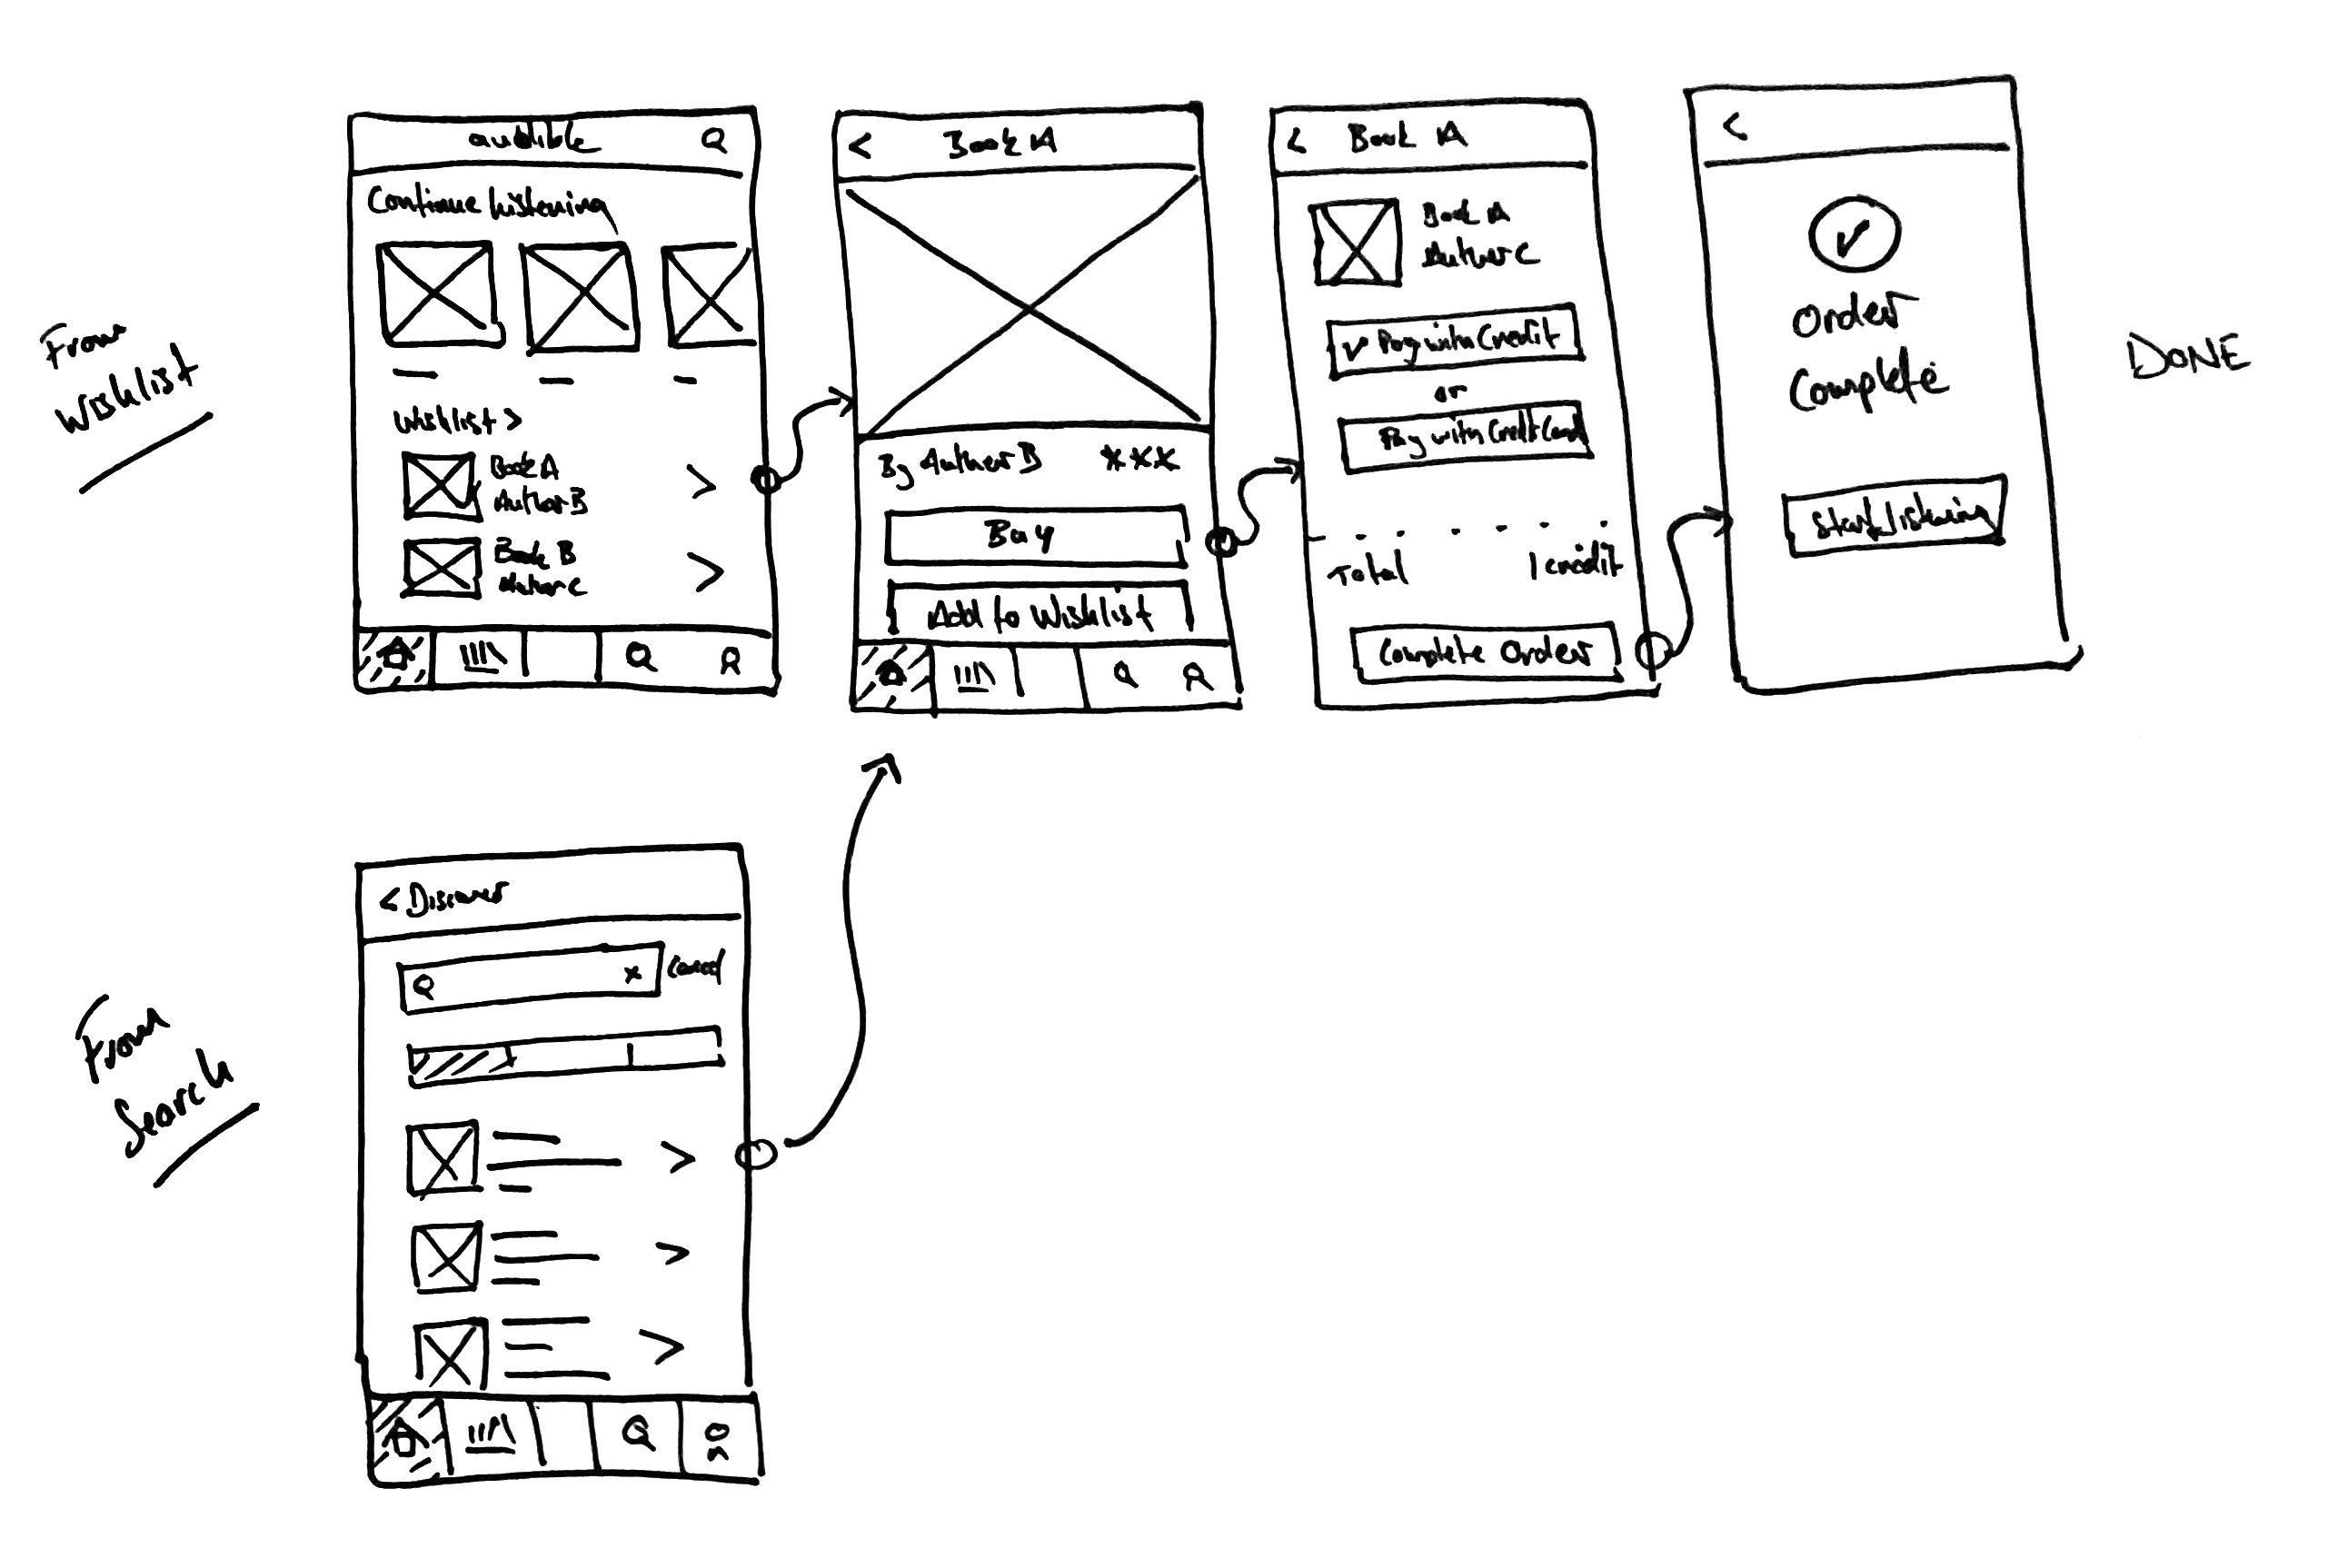 From
Wishlist
audible
Continue listening
Wishlist >
Book A
Author B
Book B
Author C
< Book A
By Author B ***
Buy
Add to Wishlist
< Book A
Book A
Author C
✓ Pay with Credit
or
Pay with Credit Card
Total 1 credit
Complete Order
<
✓
Order
Complete
Start listening
DONE
From
Search
< Discover
x Cancel